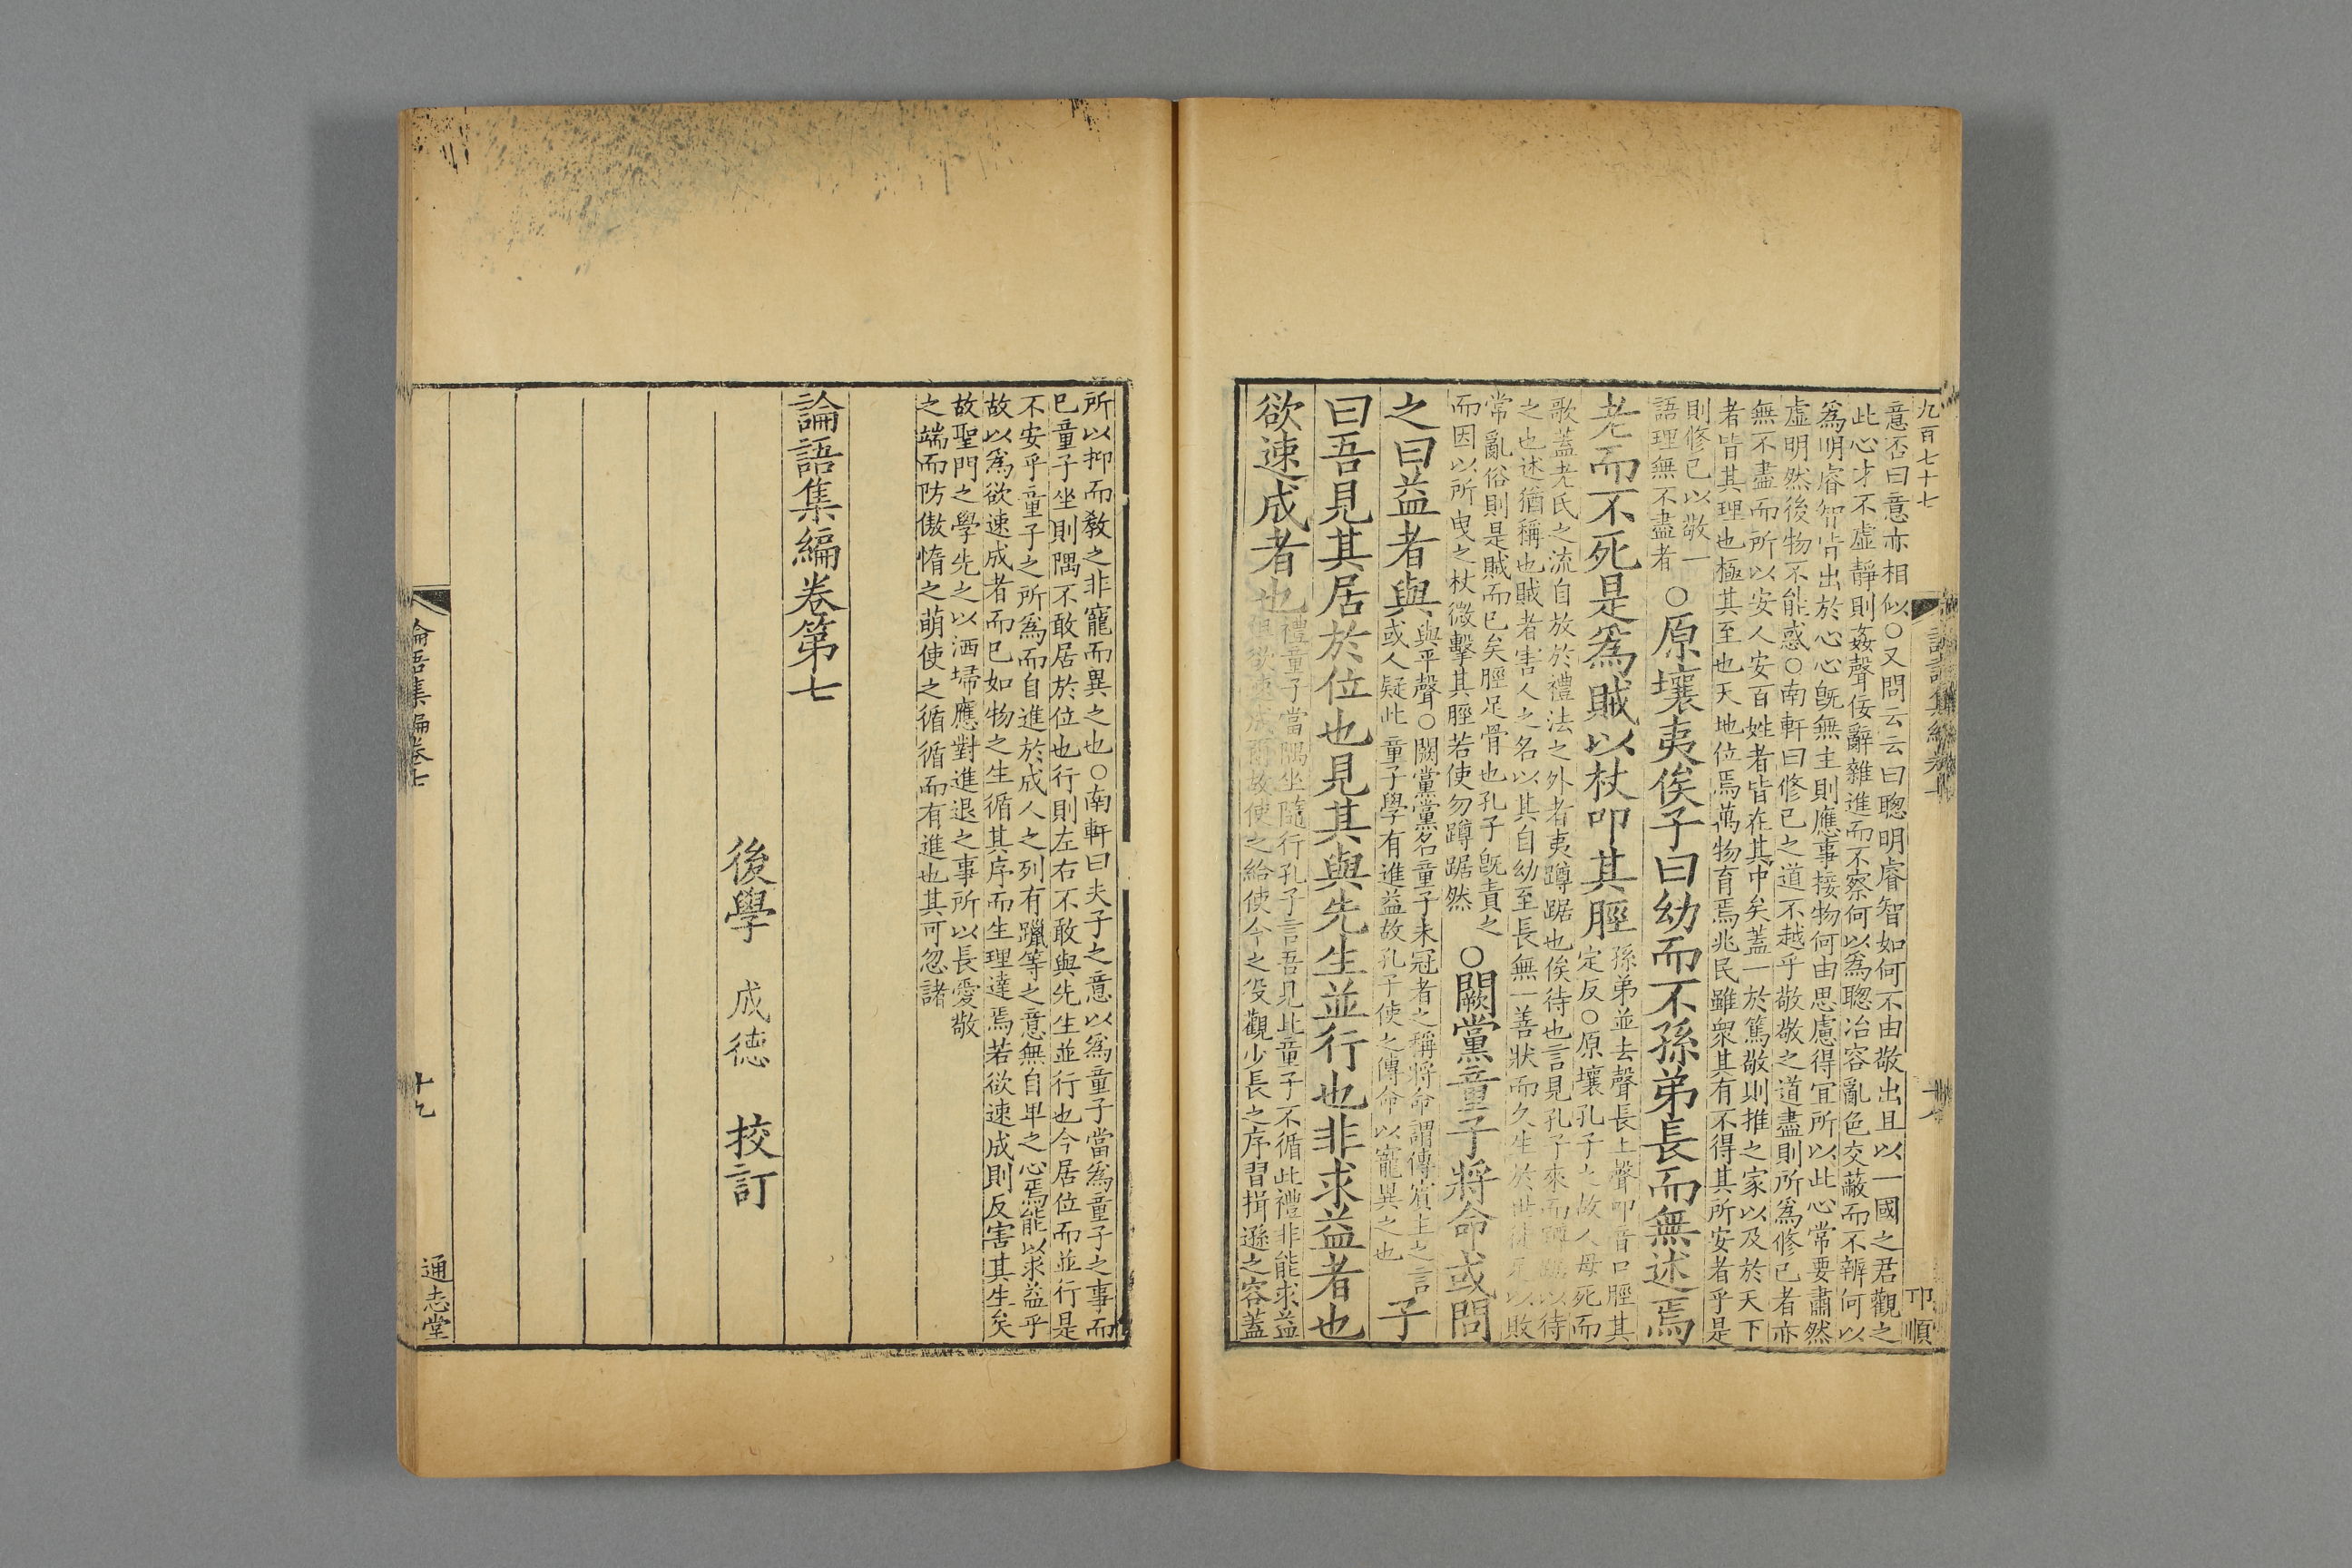 九百七十七
意否曰意亦相似○又問云云曰聰明睿智如何不由敬出且以一國之君觀之
此心才不虛靜則姦聲佞辭雜進而不察何以為聰冶容亂色交蔽而不辨何以
為明睿智皆出於心心旣無主則應事接物何由思慮得宜所以此心常要肅然
虛明然後物不能惑○南軒曰修已之道不越乎敬敬之道盡則所為修已者亦
無不盡而所以安人安百姓者皆在其中矣蓋一於篤敬則推之家以及於天下
者皆其理也極其至也天地位焉萬物育焉兆民雖衆其有不得其所安者乎是
則修已以敬一
語理無不盡者
○原壤夷俟子曰幼而不孫弟長而無述焉
老而不死是爲賊以杖叩其脛
孫弟並去聲長上聲叩音口脛其
定反○原壤孔子之故人母死而
歌蓋老氏之流自放於禮法之外者夷蹲踞也俟待也言見孔子來而蹲踞以待
之也述猶稱也賊者害人之名以其自幼至長無一善狀而久生於世徒足以敗
常亂俗則是賊而已矣脛足骨也孔子旣責之
而因以所曳之杖微擊其脛若使勿蹲踞然
○闕黨童子將命或問
之曰益者與
與平聲○闕黨黨名童子未冠者之稱將命謂傳賓主之言
或人疑此童子學有進益故孔子使之傳命以寵異之也
子
曰吾見其居於位也見其與先生並行也非求益者也
欲速成者也
禮童子當隅坐隨行孔子言吾見此童子不循此禮非能求益
但欲速成爾故使之給使令之役觀少長之序習揖遜之容蓋
論語集編卷七
十八
卭順
所以抑而敎之非寵而異之也○南軒曰夫子之意以爲童子當爲童子之事而
已童子坐則隅不敢居於位也行則左右不敢與先生並行也今居位而並行是
不安乎童子之所爲而自進於成人之列有躐等之意無自卑之心焉能以求益乎
故以爲欲速成者而已如物之生循其序而生理達焉若欲速成則反害其生矣
故聖門之學先之以洒埽應對進退之事所以長愛敬
之端而防傲惰之萌使之循循而有進也其可忽諸
論語集編卷第七
後學 成德 校訂
論語集編卷七
十九
通志堂